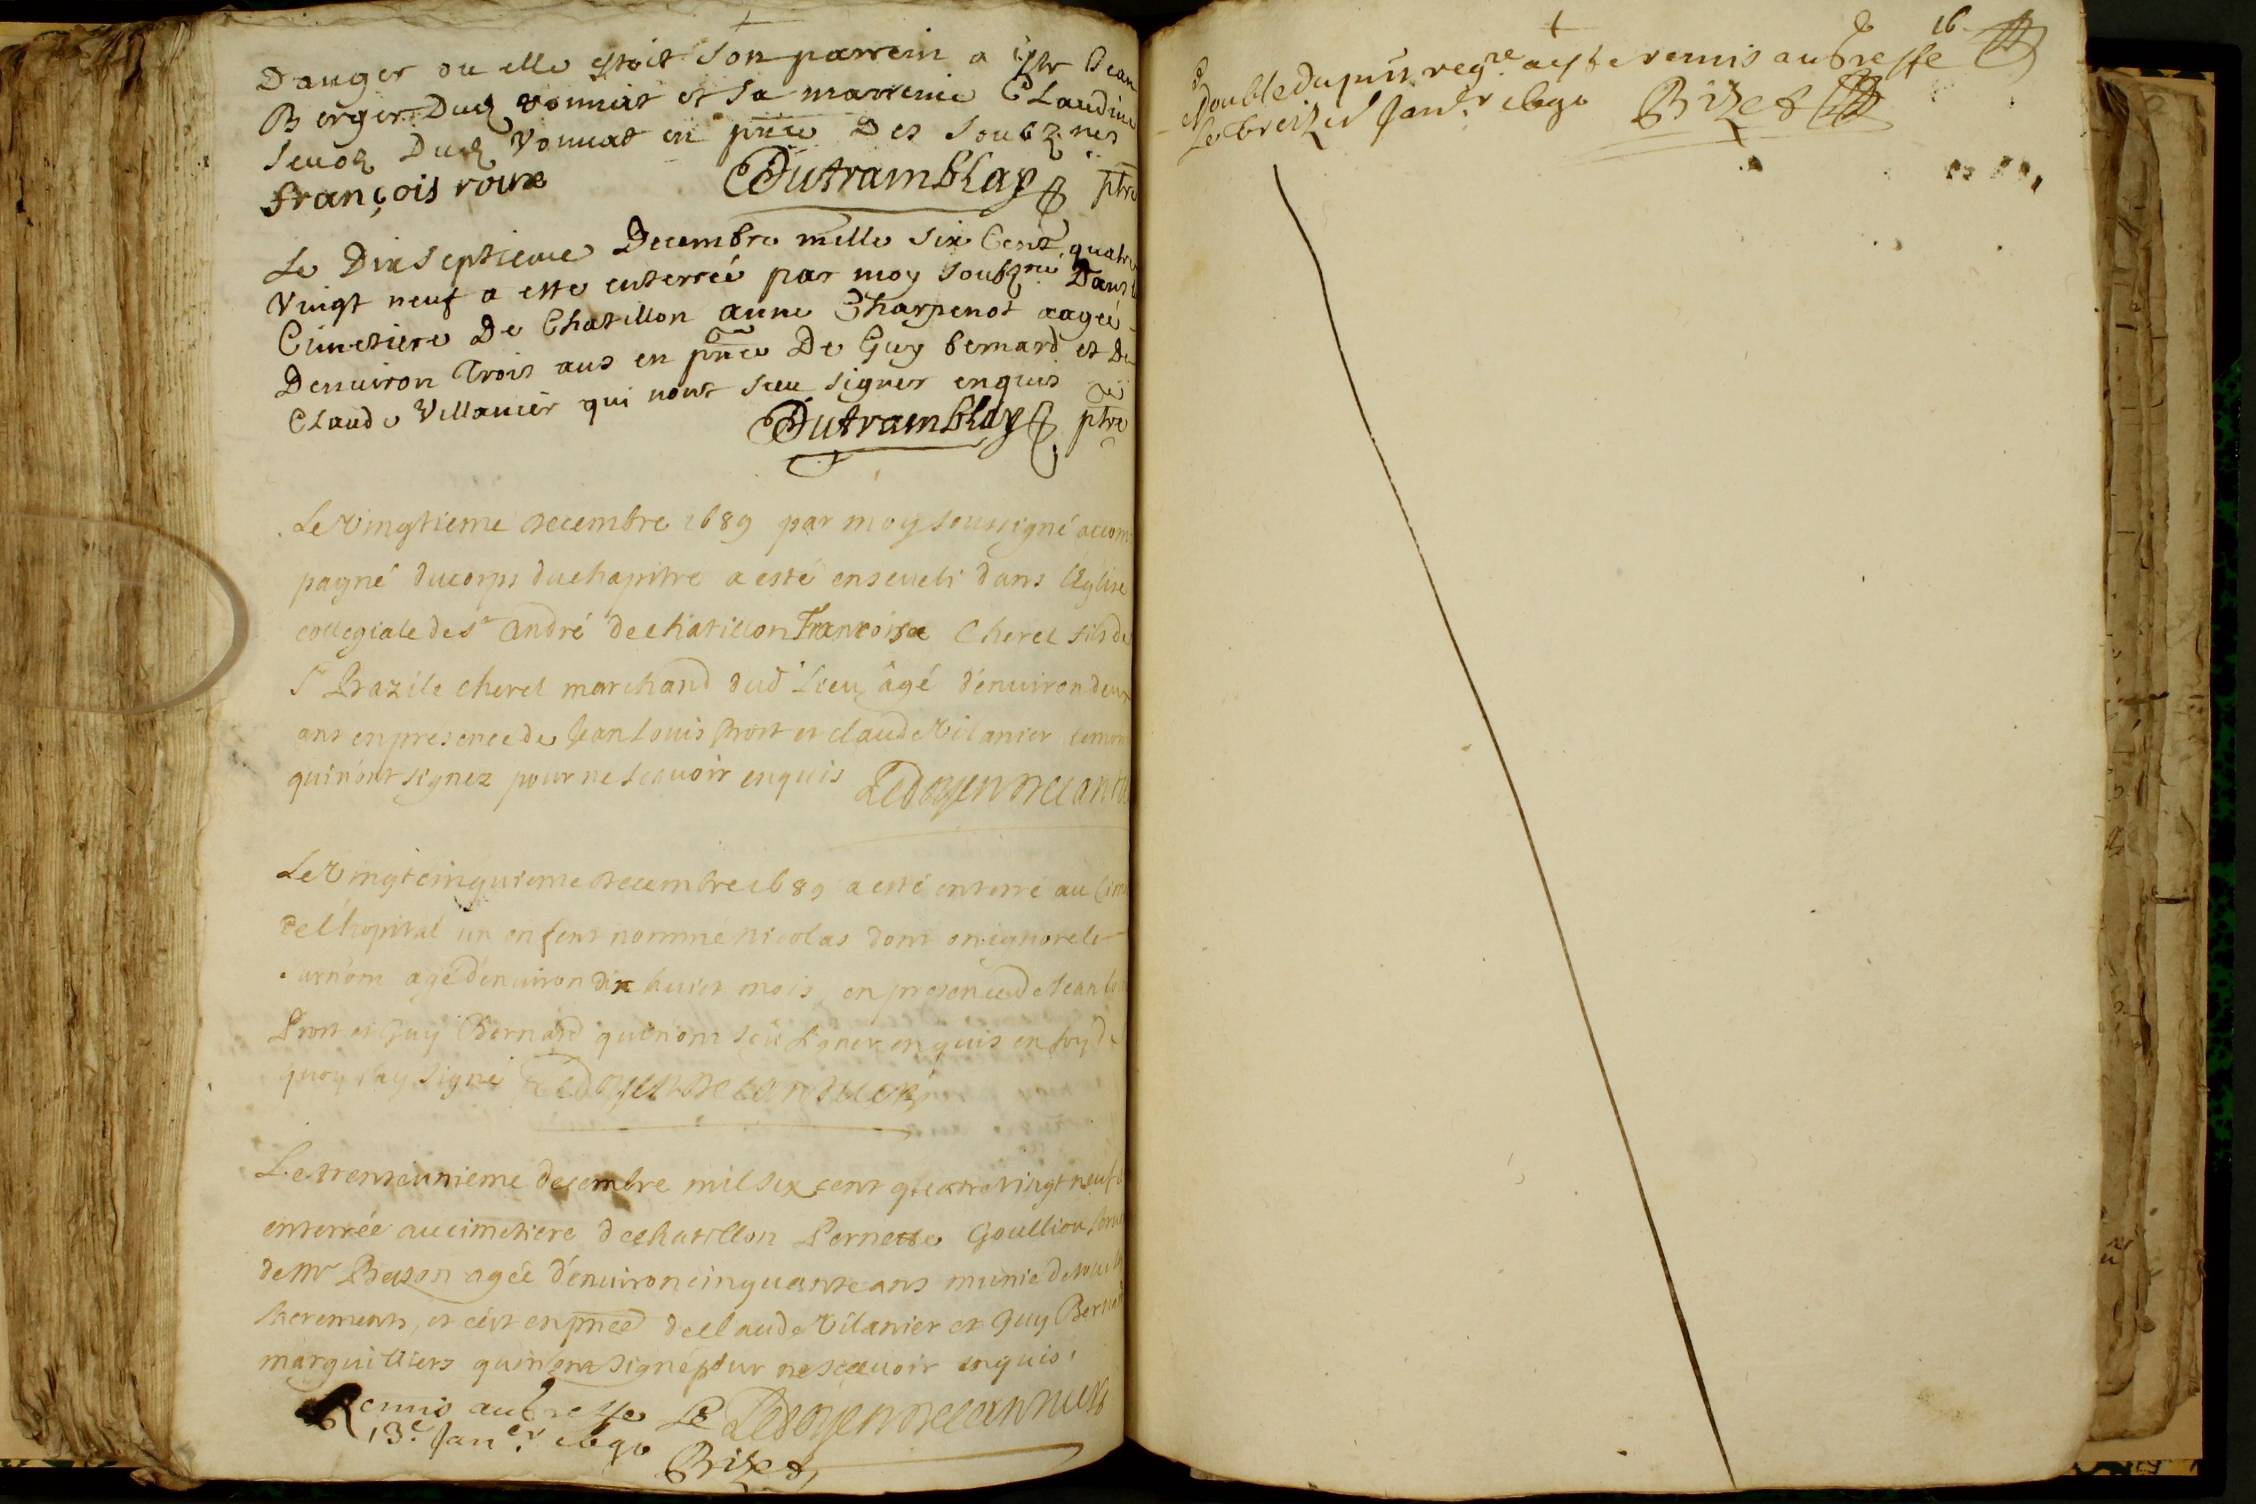 Danger ou elle estoit son parrein a este Jean
Berger Dud vonnat et sa marreine Claudine
Dud Vonnat en pnce Des soubz.nes
françois roux Dutramblay ptre
Le Dixseptieme Decembre mille six Cent quatre
Vingt neuf a este enterreé par moy soubzne Dans le
Cimetiere De Chatillon anne Charpenot aageé
Denuiron Trois ans en pnce De Guy bernard et De
Claude Villanier qui nont sceu signer enquis
Dutramblay ptre
Le vingtieme decembre 1689 par moy soussigné accom
pagné ducorps duchapitre a esté enseveli dans l'Eglise
collegiale de st André dechatillon Francoise Cherel fils de
sr Bazile cherel marchand dud lieu âgé d'enuiron deux
ans enpresence de Jean Louis Prost et claude Vilanier
quinont signez pour ne scauoir enquis Ledoyen
Le Vingtcinquieme decembre 1689 a esté enterré au Cim
de l'hopital un enfent nomme Nicolas dont onignore le
surnom agé d'enuiron dix huict mois en presence de Jean Lou
Prost et Guy Bernard quinont sceu signer enquis en foy de
quoy j'ay signé Ledoyen
Le trenteunieme decembre mil six cent quatrevingt neuf
enterrée aucimetiere dechatillon Pernette Goullion
de Mr agée d'enuiron cinquante ans munie de
sacrements, et cest enpnce declaude Vilanier et Guy Bernard
marguilliers quinont signé pour nescauoir enquis.
Remis aubresse Le Ledoyen
13e Janer 1690 Brizet
16
Double du pnt regre a este remis au bresse
Le treize Janr 1690 Brizet